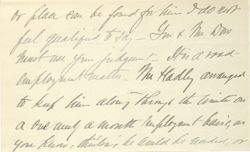 or place can be found for him I do not
feel qualified to say – You & Mr. Dow
must use your judgment. It is a road-
employment matter. Mr Hadley arranged
to keep him along through the winter on
a one and a month employment basis, as
you know, thinking he could be needed, or